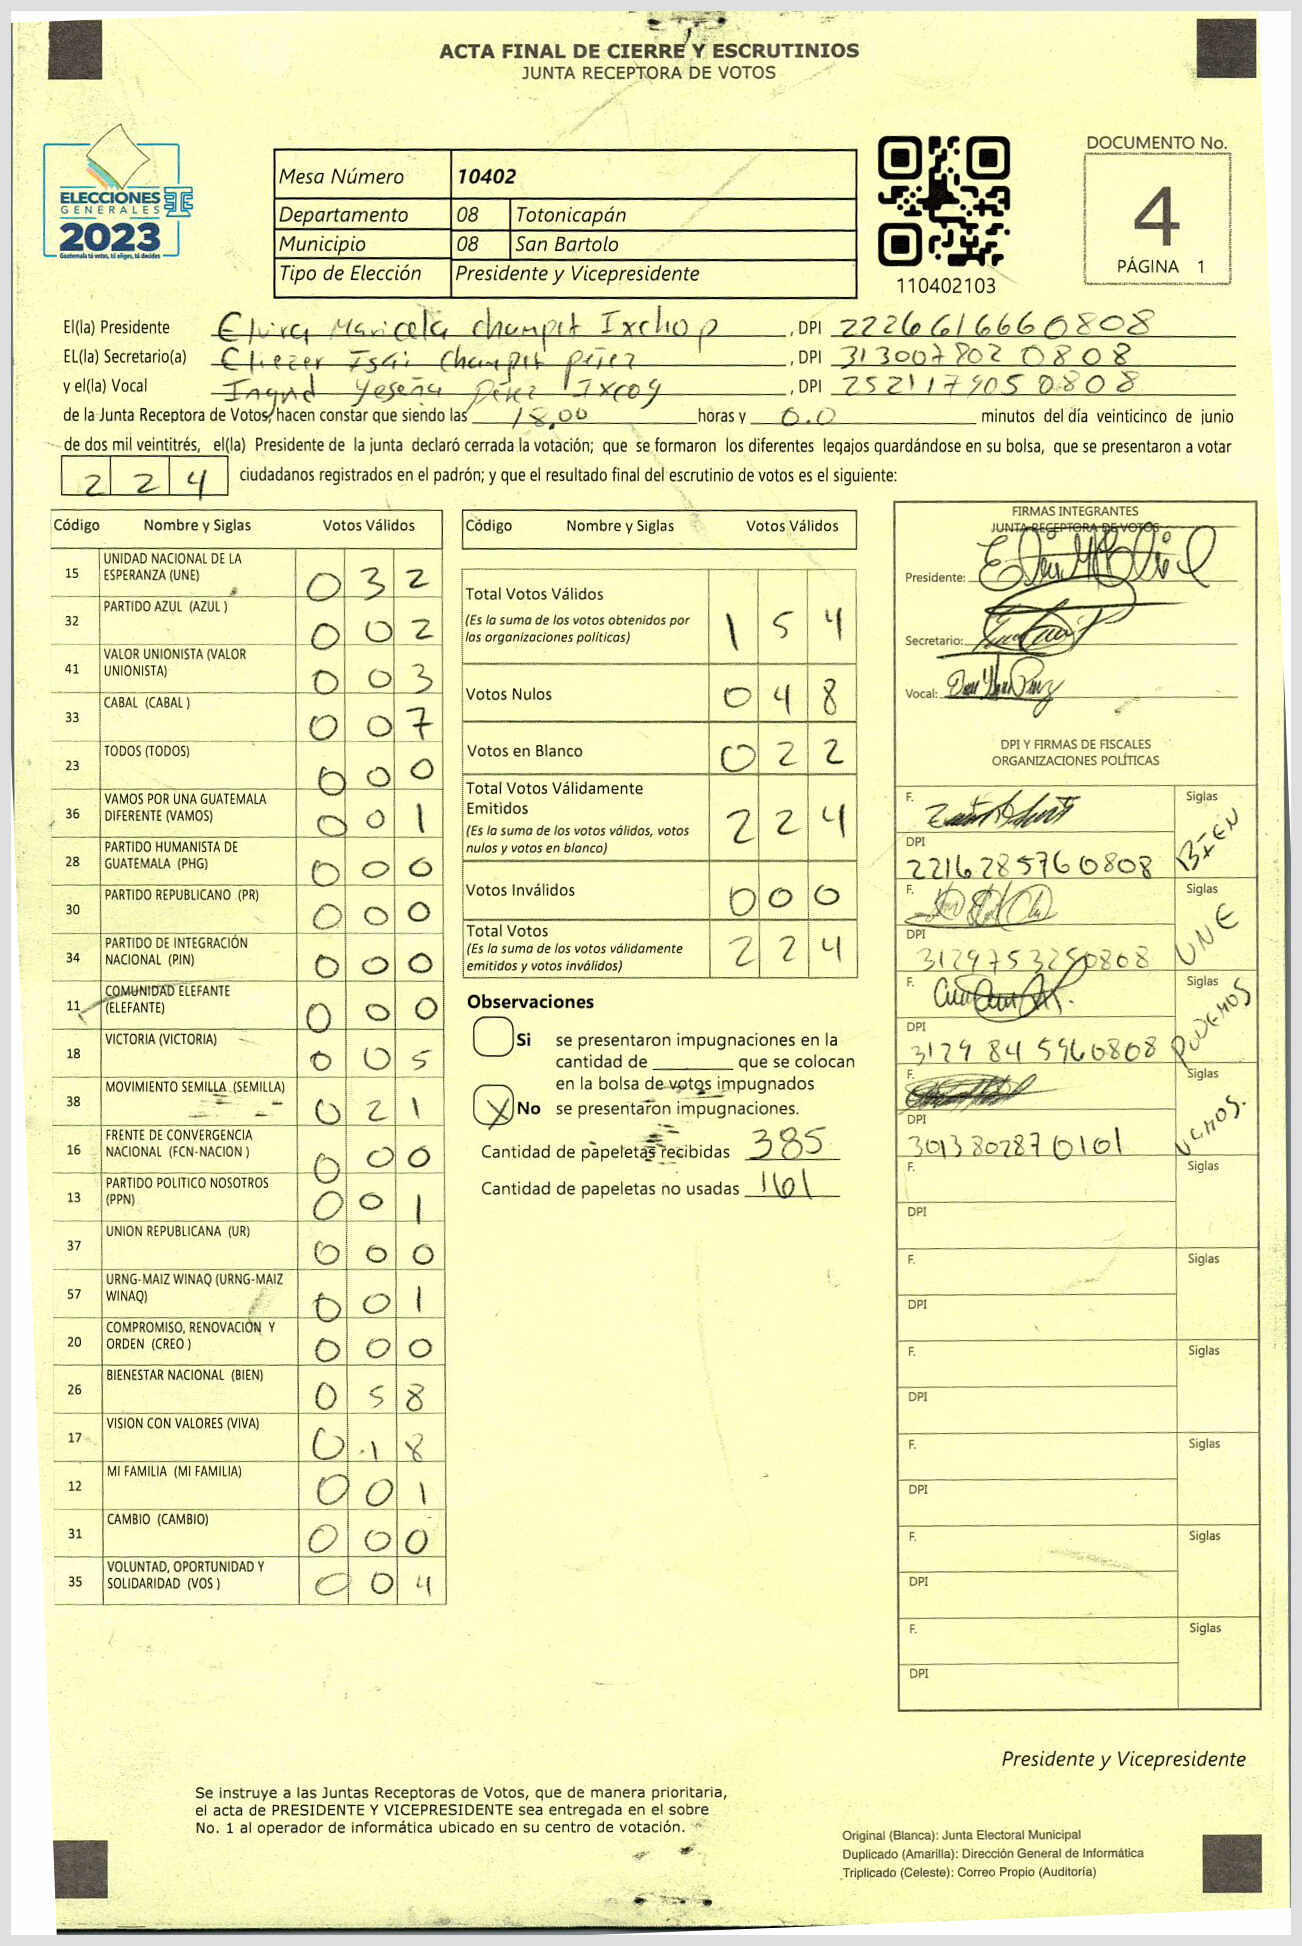 ACTA FINAL DE CIERRE Y ESCRUTINIOS
JUNTA RECEPTORA DE VOTOS
ELECCIONES
GENERALES
2023
Guatemala tú votas, tú eliges, tú decides
Mesa Número 10402
Departamento 08 Totonicapán
Municipio 08 San Bartolo
Tipo de Elección Presidente y Vicepresidente
110402103
DOCUMENTO No.
4
PÁGINA 1
El(la) Presidente Elvira Maricela Champet Ixchop, DPI 2226616660808
EL(la) Secretario(a) Eliezer Isai Champet Pérez, DPI 3130078020808
y el(la) Vocal Ingrid Yeseña Pérez Ixcoy, DPI 2521179050808
de la Junta Receptora de Votos, hacen constar que siendo las 18.00 horas y 0.0 minutos del día veinticinco de junio
de dos mil veintitrés, el(la) Presidente de la junta declaró cerrada la votación; que se formaron los diferentes legajos guardándose en su bolsa, que se presentaron a votar
224 ciudadanos registrados en el padrón; y que el resultado final del escrutinio de votos es el siguiente:
Código Nombre y Siglas Votos Válidos
15 UNIDAD NACIONAL DE LA ESPERANZA (UNE) 032
32 PARTIDO AZUL (AZUL ) 002
41 VALOR UNIONISTA (VALOR UNIONISTA) 003
33 CABAL (CABAL ) 007
23 TODOS (TODOS) 000
36 VAMOS POR UNA GUATEMALA DIFERENTE (VAMOS) 001
28 PARTIDO HUMANISTA DE GUATEMALA (PHG) 000
30 PARTIDO REPUBLICANO (PR) 000
34 PARTIDO DE INTEGRACIÓN NACIONAL (PIN) 000
11 COMUNIDAD ELEFANTE (ELEFANTE) 000
18 VICTORIA (VICTORIA) 005
38 MOVIMIENTO SEMILLA (SEMILLA) 021
16 FRENTE DE CONVERGENCIA NACIONAL (FCN-NACION ) 000
13 PARTIDO POLITICO NOSOTROS (PPN) 001
37 UNION REPUBLICANA (UR) 000
57 URNG-MAIZ WINAQ (URNG-MAIZ WINAQ) 001
20 COMPROMISO, RENOVACION Y ORDEN (CREO ) 000
26 BIENESTAR NACIONAL (BIEN) 058
17 VISION CON VALORES (VIVA) 018
12 MI FAMILIA (MI FAMILIA) 001
31 CAMBIO (CAMBIO) 000
35 VOLUNTAD, OPORTUNIDAD Y SOLIDARIDAD (VOS ) 004
Código Nombre y Siglas Votos Válidos
Total Votos Válidos 154
(Es la suma de los votos obtenidos por
las organizaciones políticas)
Votos Nulos 048
Votos en Blanco 022
Total Votos Válidamente
Emitidos 224
(Es la suma de los votos válidos, votos
nulos y votos en blanco)
Votos Inválidos 000
Total Votos 224
(Es la suma de los votos válidamente
emitidos y votos inválidos)
Observaciones
Si se presentaron impugnaciones en la
cantidad de ________ que se colocan
en la bolsa de votos impugnados
X No se presentaron impugnaciones.
Cantidad de papeletas recibidas 385
Cantidad de papeletas no usadas 161
FIRMAS INTEGRANTES
JUNTA RECEPTORA DE VOTOS
Presidente:
Secretario:
Vocal:
DPI Y FIRMAS DE FISCALES
ORGANIZACIONES POLÍTICAS
F. Siglas BIEN
DPI 2216285760808
F. Siglas UNE
DPI 3129753250808
F. Siglas PODEMOS
DPI 3129845960808
F. Siglas VAMOS.
DPI 3013802870101
F. Siglas
DPI
F. Siglas
DPI
F. Siglas
DPI
F. Siglas
DPI
F. Siglas
DPI
F. Siglas
DPI
Presidente y Vicepresidente
Se instruye a las Juntas Receptoras de Votos, que de manera prioritaria,
el acta de PRESIDENTE Y VICEPRESIDENTE sea entregada en el sobre
No. 1 al operador de informática ubicado en su centro de votación.
Original (Blanca): Junta Electoral Municipal
Duplicado (Amarilla): Dirección General de Informática
Triplicado (Celeste): Correo Propio (Auditoría)